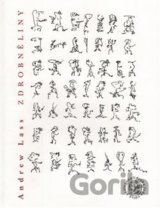 Andrew Lass ZDROBNĚLINY
Gorila